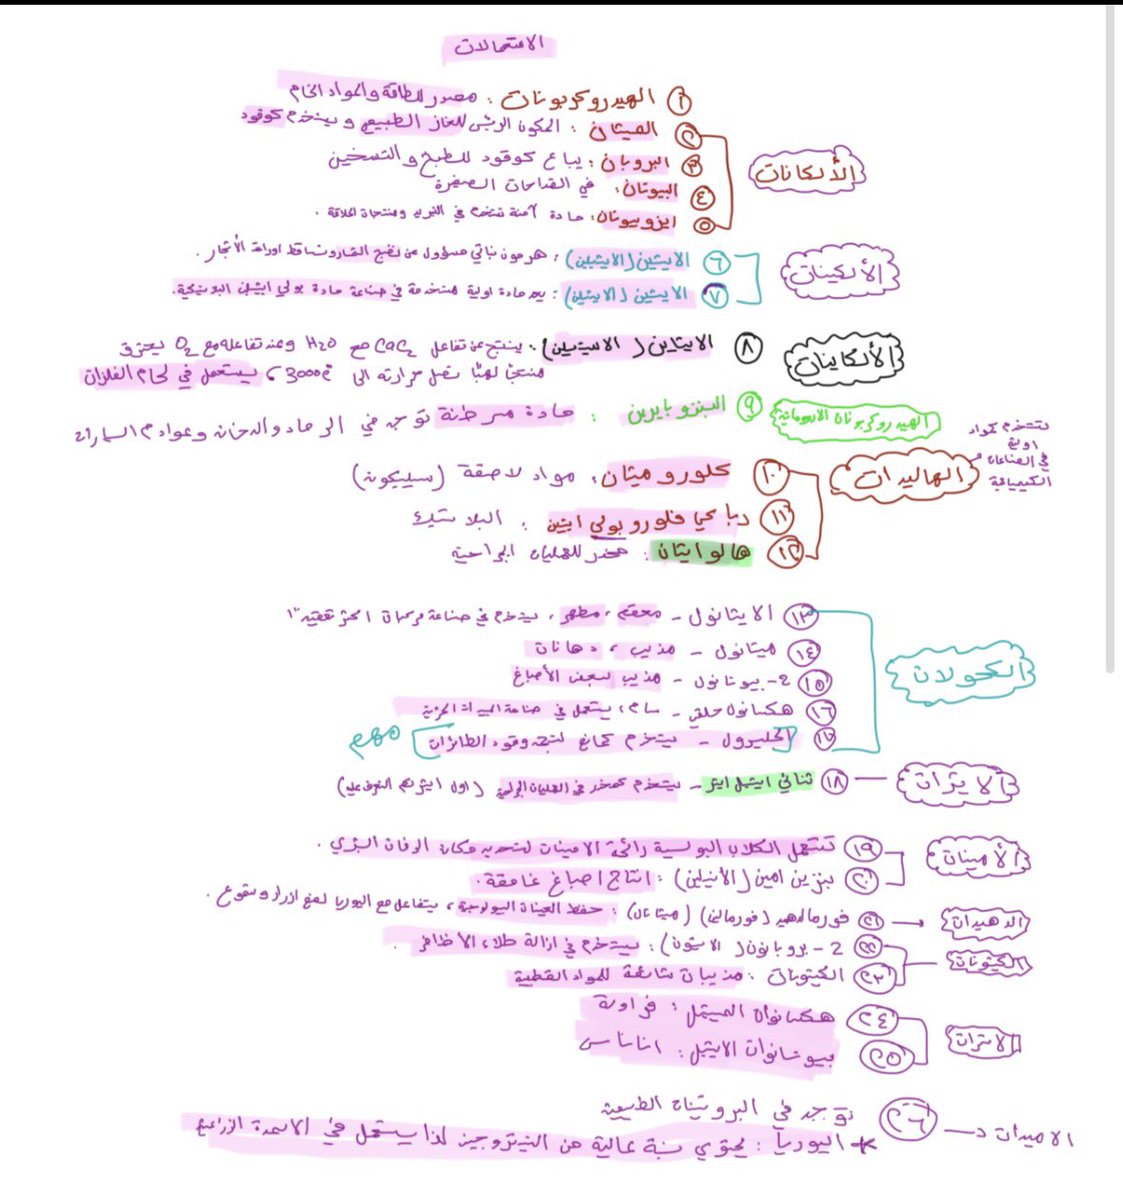 الاستعمالات
① الهيدروكربونات: مصدر للطاقة والمواد الخام
الألكانات
② الميثان: المكون الرئيسي للغاز الطبيعي ويستخدم كوقود
③ البروبان: يباع كوقود للطبخ والتسخين
④ البيوتان: في القداحات الصغيرة
⑤ ايزوبيوتان: مادة آمنة تستخدم في التبريد ومنتجات الحلاقة.
الألكينات
⑥ الايثين (الايثيلين): هرمون نباتي مسؤول عن نضج الثمار وتساقط اوراق الأشجار.
⑦ الايثين (الايثيلين): يعد مادة اولية مستخدمة في صناعة مادة بولي ايثيلين البلاستيكية.
الألكاينات
⑧ الايثاين (الاسيتيلين): ينتج عن تفاعل CaC₂ مع H₂O وعند تفاعله مع O₂ يحترق
منتجًا لهبًا تصل حرارته الى 3000c° ، يستعمل في لحام الفلزات
الهيدروكربونات الاروماتية
⑨ البنزوبايرين: مادة مسرطنة توجد في الرماد والدخان وعوادم السيارات
الهاليدات
تستخدم كمواد
اولية
في الصناعات
الكيميائية
⑩ كلوروميثان: مواد لاصقة (سيليكونية)
⑪ رباعي فلوروبولي ايثين: البلاستيك
⑫ هالوايثان: مخدر للعمليات الجراحية
الكحولات
⑬ الايثانول - معقم، مطهر، يستخدم في صناعة مركبات اكثر تعقيدًا
⑭ ميثانول - مذيب، دهانات
⑮ 2-بيوتانول - مذيب لبعض الأصباغ
⑯ هكسانول حلقي - سام، يستعمل في صناعة المبيدات الحشرية
⑰ [الجليسرول - يستخدم كمانع لتجمد وقود الطائرات] مهم
الايثرات
⑱ ثنائي ايثيل ايثر - يستخدم كمخدر في العمليات الجراحية (اول ايثر تم التعرف عليه)
الأمينات
⑲ تستعمل الكلاب البوليسية رائحة الامينات لتحديد مكان الرفات البشري.
⑳ بنزين امين (الأنيلين): انتاج اصباغ غامقة.
الدهيدات
㉑ فورمالدهيد (فورمالين) (ميثانال): حفظ العينات البيولوجية، يتفاعل مع اليوريا لصنع ازرار وشموع.
الكيتونات
㉒ 2-بروبانون (الاسيتون): يستخدم في ازالة طلاء الأظافر.
㉓ الكيتونات: مذيبات شائعة للمواد القطبية
الاسترات
㉔ هكسانوات الميثيل: فراولة
㉕ بيوتانوات الايثيل: اناناس
الاميدات — ㉖ توجد في البروتينات الطبيعية
* اليوريا: يحتوي نسبة عالية من النيتروجين لذا يستعمل في الاسمدة الزراعية